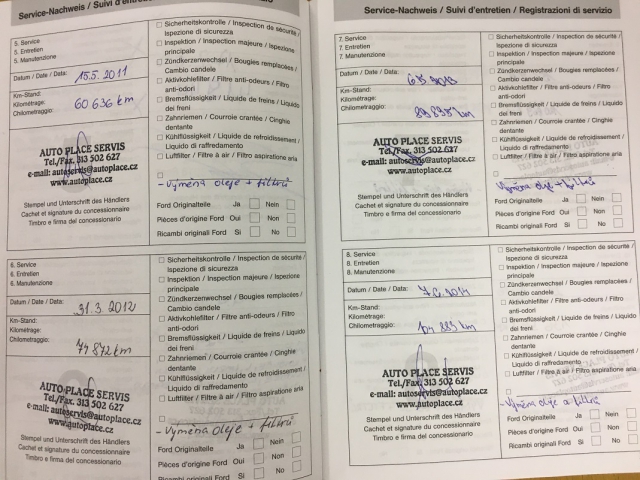 Service-Nachweis / Suivi d'entretien
5. Service
5. Entretien
5. Manutenzione
Datum / Date / Data: 15.5. 2011
Km-Stand:
Kilométrage:
Chilometraggio:
60 636 km
AUTO PLACE SERVIS
Tel./Fax. 313 502 627
e-mail: autoservis@autoplace.cz
www.autoplace.cz
Stempel und Unterschrift des Händlers
Cachet et signature du concessionnaire
Timbro e firma del concessionario
Sicherheitskontrolle / Inspection de sécurité /
Ispezione di sicurezza
Inspektion / Inspection majeure / Ispezione
principale
Zündkerzenwechsel / Bougies remplacées /
Cambio candele
Aktivkohlefilter / Filtre anti-odeurs / Filtro
anti-odori
Bremsflüssigkeit / Liquide de freins / Liquido
dei freni
Zahnriemen / Courroie crantée / Cinghie
dentante
Kühlflüssigkeit / Liquide de refroidissement /
Liquido di raffredamento
Luftfilter / Filtre à air / Filtro aspirazione aria
- Výměna oleje + filtrů
Ford Originalteile Ja Nein
Pièces d'origine Ford Oui Non
Ricambi originali Ford Si No
6. Service
6. Entretien
6. Manutenzione
Datum / Date / Data: 31.3 2012
Km-Stand:
Kilométrage:
Chilometraggio:
74 872 km
AUTO PLACE SERVIS
Tel./Fax. 313 502 627
e-mail: autoservis@autoplace.cz
www.autoplace.cz
Stempel und Unterschrift des Händlers
Cachet et signature du concessionnaire
Timbro e firma del concessionario
Sicherheitskontrolle / Inspection de sécurité /
Ispezione di sicurezza
Inspektion / Inspection majeure / Ispezione
principale
Zündkerzenwechsel / Bougies remplacées /
Cambio candele
Aktivkohlefilter / Filtre anti-odeurs / Filtro
anti-odori
Bremsflüssigkeit / Liquide de freins / Liquido
dei freni
Zahnriemen / Courroie crantée / Cinghie
dentante
Kühlflüssigkeit / Liquide de refroidissement /
Liquido di raffredamento
Luftfilter / Filtre à air / Filtro aspirazione aria
- Výměna oleje + filtrů
Ford Originalteile Ja Nein
Pièces d'origine Ford Oui Non
Ricambi originali Ford Si No
Service-Nachweis / Suivi d'entretien / Registrazioni di servizio
7. Service
7. Entretien
7. Manutenzione
Datum / Date / Data:
Km-Stand:
Kilométrage:
Chilometraggio:
AUTO PLACE SERVIS
Tel./Fax. 313 502 627
e-mail: autoservis@autoplace.cz
www.autoplace.cz
Stempel und Unterschrift des Händlers
Cachet et signature du concessionnaire
Timbro e firma del concessionario
Sicherheitskontrolle / Inspection de sécurité /
Ispezione di sicurezza
Inspektion / Inspection majeure / Ispezione
principale
Zündkerzenwechsel / Bougies remplacées /
Cambio candele
Aktivkohlefilter / Filtre anti-odeurs / Filtro
anti-odori
Bremsflüssigkeit / Liquide de freins / Liquido
dei freni
Zahnriemen / Courroie crantée / Cinghie
dentante
Kühlflüssigkeit / Liquide de refroidissement /
Liquido di raffredamento
Luftfilter / Filtre à air / Filtro aspirazione aria
Výměna oleje + filtrů
Ford Originalteile Ja Nein
Pièces d'origine Ford Oui Non
Ricambi originali Ford Si No
8. Service
8. Entretien
8. Manutenzione
Datum / Date / Data: 7.6.2014
Km-Stand:
Kilométrage:
Chilometraggio: 104 883 km
AUTO PLACE SERVIS
Tel./Fax. 313 502 627
e-mail: autoservis@autoplace.cz
www.autoplace.cz
Stempel und Unterschrift des Händlers
Cachet et signature du concessionnaire
Timbro e firma del concessionario
Sicherheitskontrolle / Inspection de sécurité /
Ispezione di sicurezza
Inspektion / Inspection majeure / Ispezione
principale
Zündkerzenwechsel / Bougies remplacées /
Cambio candele
Aktivkohlefilter / Filtre anti-odeurs / Filtro
anti-odori
Bremsflüssigkeit / Liquide de freins / Liquido
dei freni
Zahnriemen / Courroie crantée / Cinghie
dentante
Kühlflüssigkeit / Liquide de refroidissement /
Liquido di raffredamento
Luftfilter / Filtre à air / Filtro aspirazione aria
- Výměna oleje a filtrů
Ford Originalteile Ja Nein
Pièces d'origine Ford Oui Non
Ricambi originali Ford Si No